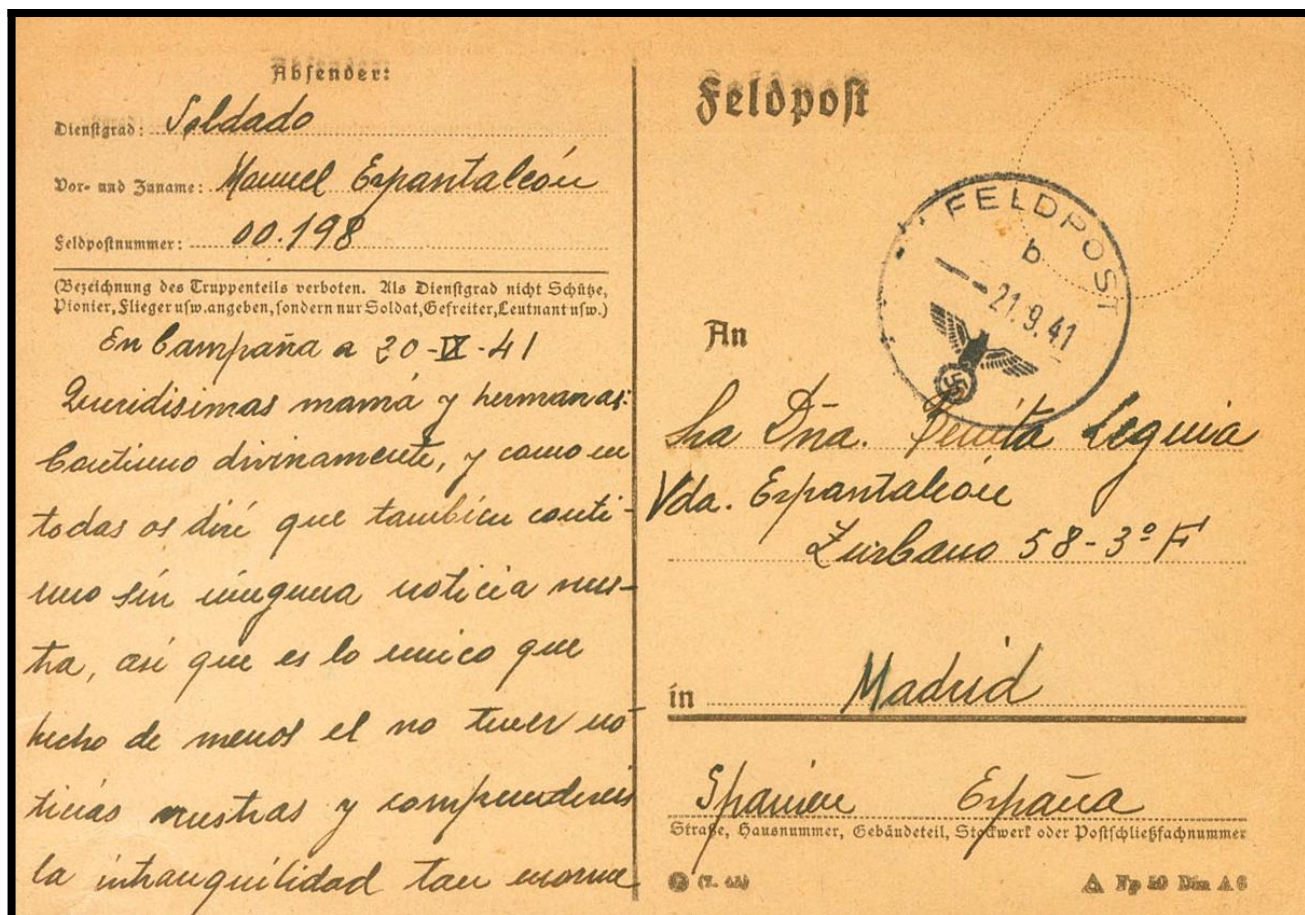 Absender:
Dienstgrad: Soldado
Vor- und Zuname: Manuel Espantaleón
Feldpostnummer: 00.198
(Bezeichnung des Truppenteils verboten. Als Dienstgrad nicht Schütze,
Pionier, Flieger usw. angeben, sondern nur Soldat, Gefreiter, Leutnant usw.)
En Campaña a 20-IX-41
Queridisimas mamá y hermanas:
Continuo divinamente, y como en
todas os diré que tambien conti-
nuo sin ninguna noticia vues-
tra, asi que es lo unico que
hecho de menos el no tener no
ticias vuestras y comprendereis
la intranquilidad tan enorme
Feldpost
FELDPOST
b
-21.9.41
An
Sra Dña. Benita Leguia
Vda. Espantaleón
Zurbano 58-3º F
in Madrid
Spanien España
Straße, Hausnummer, Gebäudeteil, Stockwerk oder Postschließfachnummer
Fp 50 Din A 6